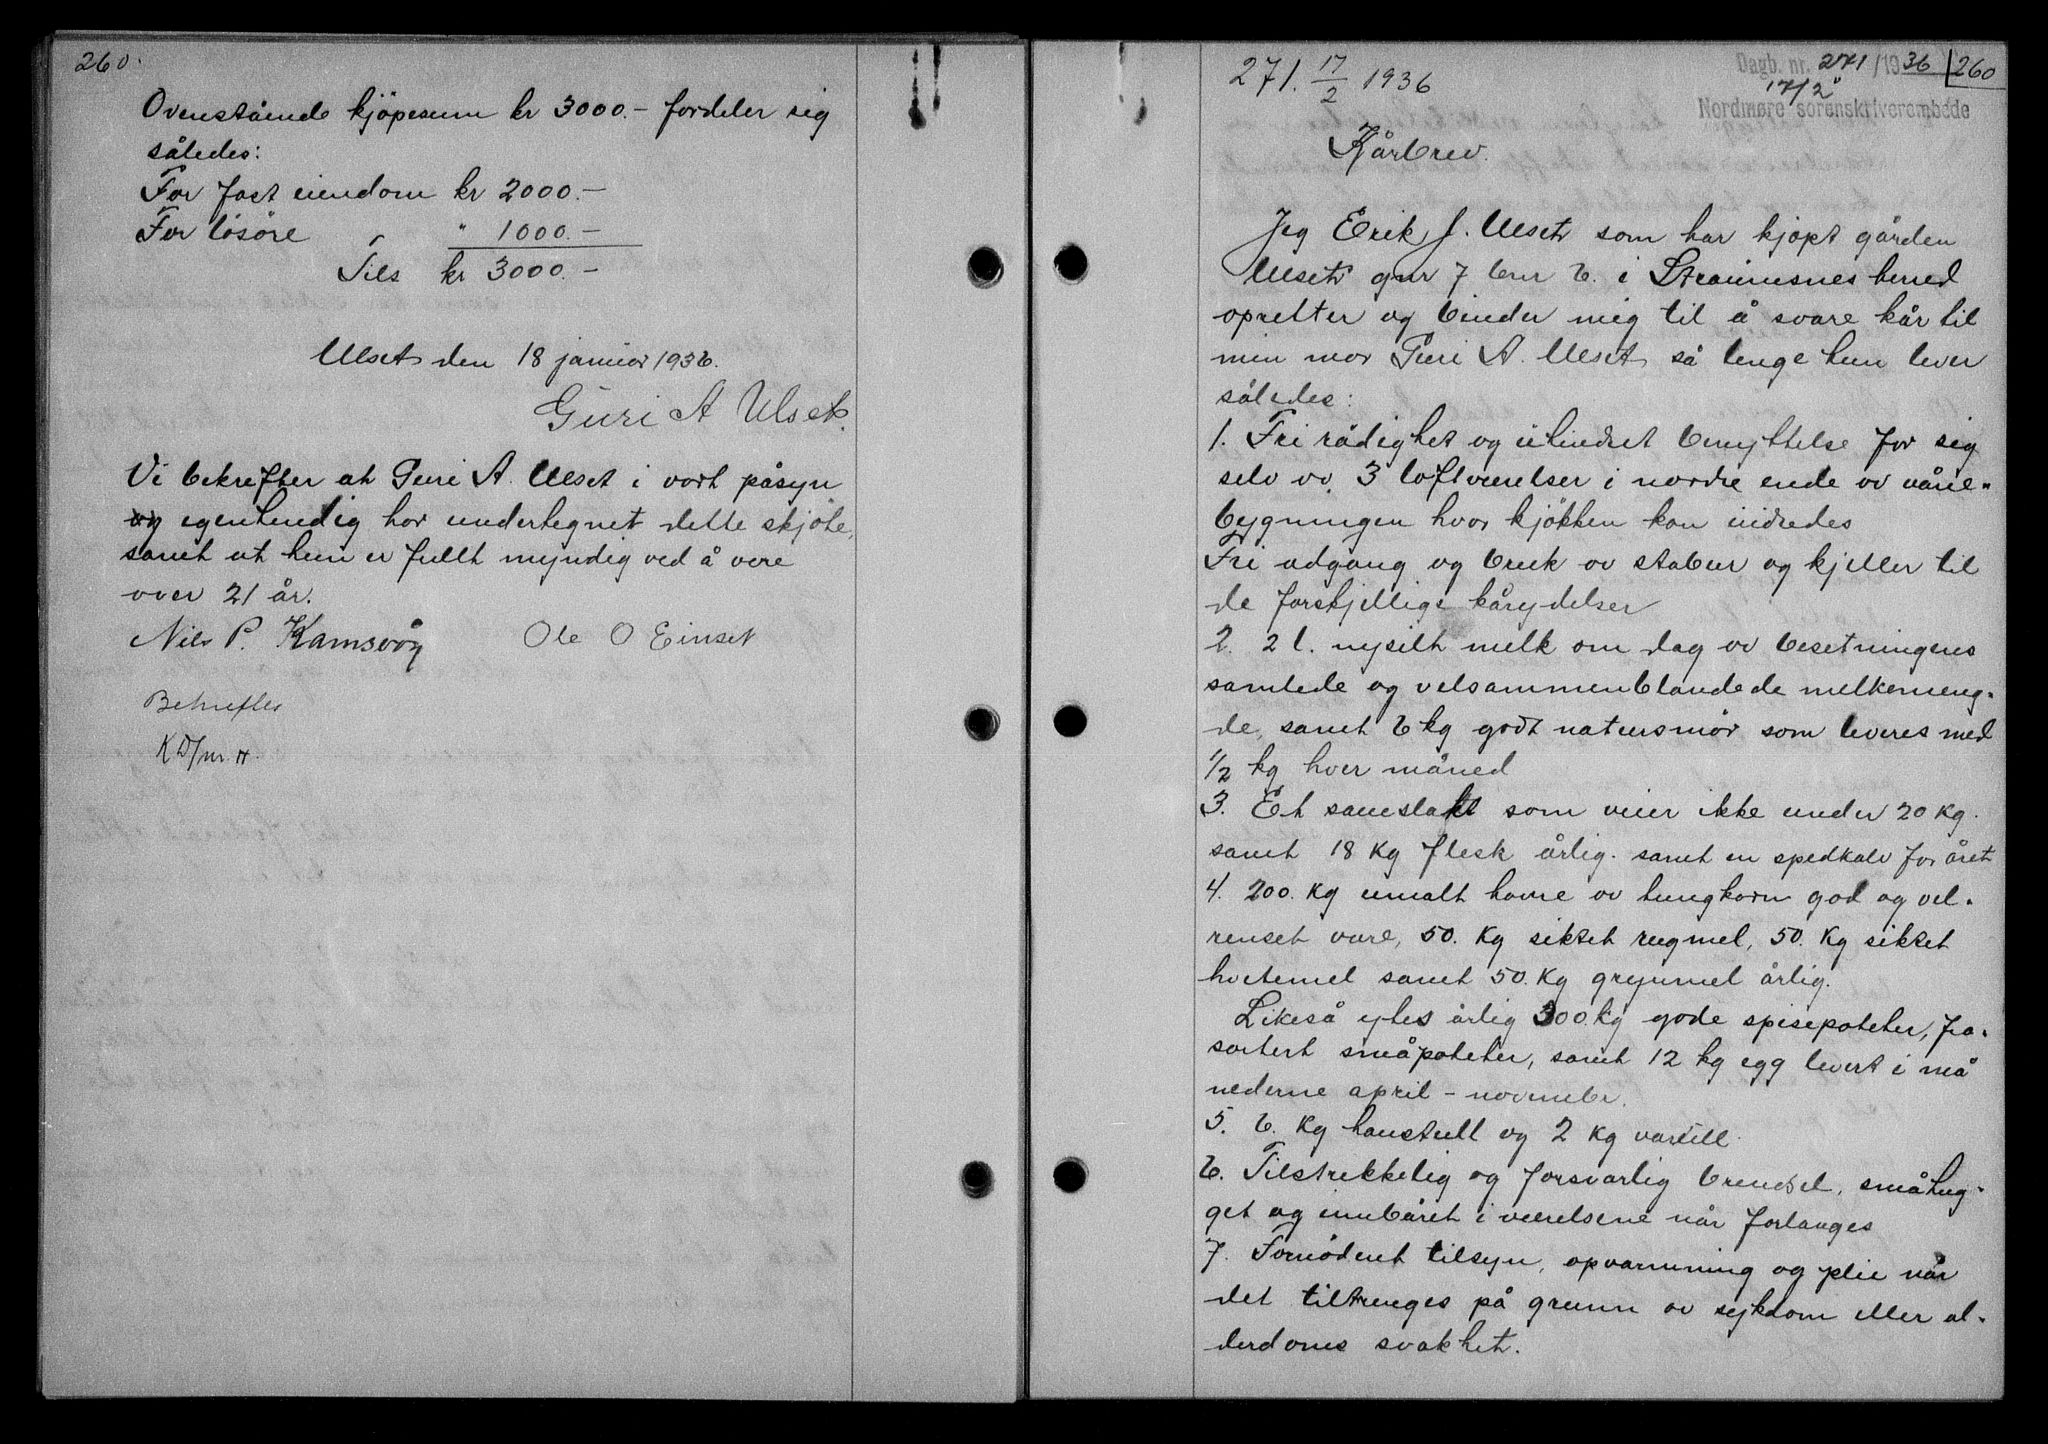 260.
Ovenstående kjöpesum kr 3000.- fordeler sig
således:
For fast eiendom kr 2000.-
For lösöre " 1000.-
Tils kr 3000.-
Ulset den 18 januar 1936.
Guri A Ulset.
Vi bekrefter at Guri A. Ulset i vort påsyn
og egenhendig har undertegnet dette skjöte,
samt at hun er fullt myndig ved å vere
over 21 år.
Nils P. Kamsvåg Ole O Einset
Bekreftes
271. 17/2 1936
Dagb. nr. 271/1936 260
17/2
Nordmøre sorenskriverembede
Kårbrev.
Jeg Erik J. Ulset som har kjöpt gården
Ulset gnr 7 bnr 6. i Straumsnes herred
opretter og binder mig til å svare kår til
min mor Guri A. Ulset så lenge hun lever
således:
1. Fri rådighet og uhindret benyttelse for sig
selv av 3 loftværelser i nordre ende av våne-
bygningen hvor kjökken kan inredes
Fri adgang og bruk av stabur og kjeller til
de forskjellige kårydelser
2. 2 l. nysilt melk om dag av besetningens
samlede og velsammenblandede melkemeng-
de, samt 6 kg godt natursmör som leveres med
1/2 kg hver måned
3. Et saueslakt som veier ikke under 20 kg.
samt 18 kg flesk årlig. samt en spedkalv for året
4. 200. kg umalt havre av tungkorn god og vel-
renset vare, 50. kg siktet rugmel, 50. kg siktet
hvetemel samt 50. kg grynmel årlig.
Likeså ytes årlig 300. kg gode spisepoteter, fra-
sortert småpoteter, samt 12 kg egg levert i må
nederne april - november.
5. 6. kg haustull og 2 kg varull
6. Tilstrekkelig og forsvarlig brendsel, småhug-
get og innbåret i værelsene når forlanges
7. Fornödent tilsyn, opvarmning og pleie når
det tiltrenges på grunn av sykdom eller al-
derdoms svakhet.